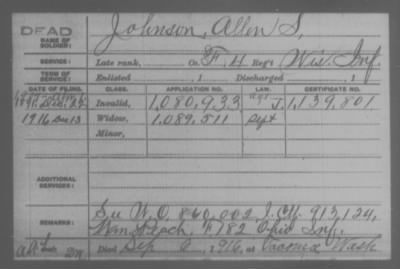 DEAD Johnson, Allen S,
NAME OF SOLDIER:
SERVICE: Late rank, Co. F 4 Reg't Wis. Inf.
TERM OF SERVICE: Enlisted , 1 Discharged , 1
DATE OF FILING. CLASS. APPLICATION NO. LAW. CERTIFICATE NO.
1891 Dec. Invalid, 1,080,933 J. 1,139,801
1916 Dec 13 Widow, 1,089,511 Sept
Minor,
ADDITIONAL SERVICES:
REMARKS: See W.O. 860,002, J. Ctf. 913,124,
Wm. Leach, F 182 Ohio Inf.
Died Sep 6, 1916, at Tacoma Wash